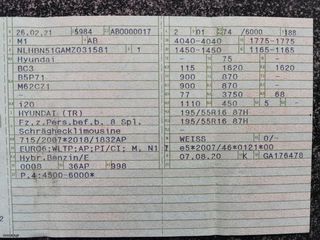 26.02.21 5984 AB0000017
M1 AB
NLHBN51GAMZ031581 1
Hyundai
BC3
B5P71
M62CZ1
-
i20
HYUNDAI (TR)
Fz.z.Pers.bef.b. 8 Spl.
Schräghecklimousine
715/2007*2018/1832AP
EURO6;WLTP;AP;PI/CI; M, N1 7
Hybr.Benzin/E
0008 36AP 998
P.4:4500-6000*
2 01 74 /6000 188
4040-4040 1775-1775
1450-1450 1165-1165
- 75 -
115 1620 1620
900 870 -
900 870 -
77 3750 68
1110 450 5 -
195/55R16 87H
195/55R16 87H
-
WEISS 0/-
e5*2007/46*0121*00
07.08.20 K GA176478